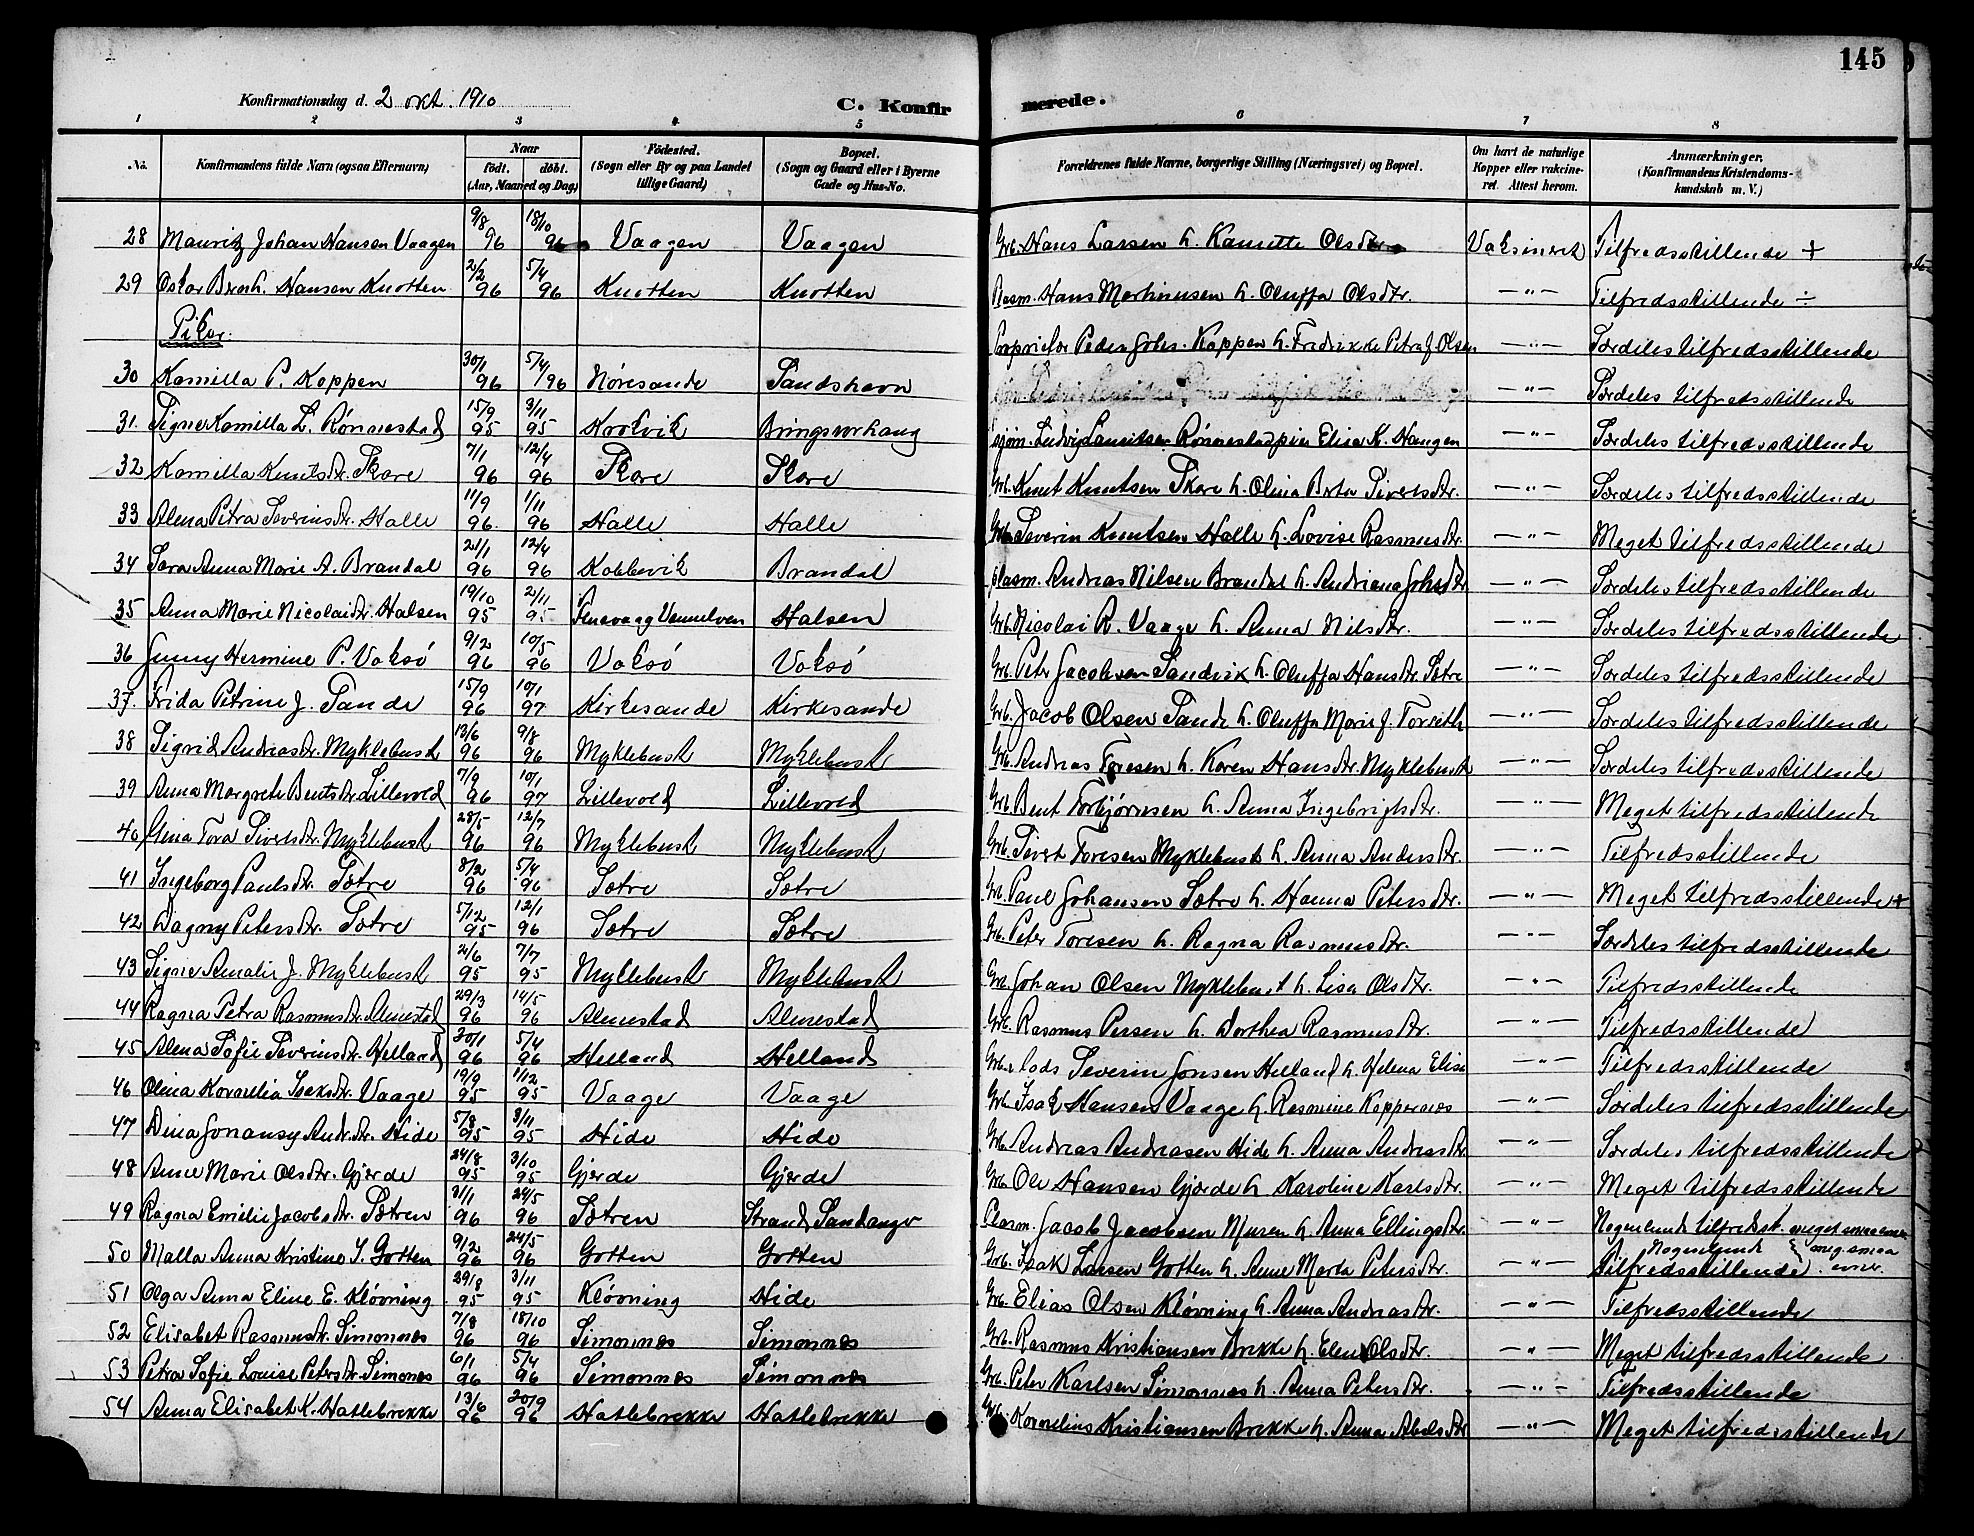 145
Konfirmationsdag d. 2 okt. 1910
C. Konfirmerede.
1 2 3 4 5 6 7 8
No. Konfirmandens fulde Navn (ogsaa Efternavn) Naar födt. döbt. (Aar, Maaned og Dag) Födested. (Sogn eller By og paa Landet tillige Gaard) Bopæl. (Sogn og Gaard eller i Byerne Gade og Hus-No. Forældrenes fulde Navne, borgerlige Stilling (Næringsvei) og Bopæl. Om havt de naturlige Kopper eller vakcineret. Attest herom. Anmærkninger. (Konfirmandens Kristendomskundskab m. V.)
28 Mauritz Johan Hansen Vaagen 9/8 96 18/10 96 Vaagen Vaagen Grb. Hans Larsen h. Olsdtr Vaksineret Tilfredsstillende +
29 Oskar Hansen Knotten 2/2 96 5/4 96 Knotten Knotten Hans Martinusen h. Oluffa Olsdtr. —"— Tilfredsstillende ÷
Piker. Proprietær Peder Johs. Koppen h. Fredrikke Petra J Olsen —"— Særdeles tilfredsstillende
30 Kamilla P. Koppen 30/1 96 5/4 96 Nøresande Sandshavn —"— Særdeles tilfredsstillende
31. Signe Kamilla L. Rønnestad 15/9 95 3/11 95 Krokvik Bringsvorhaug Ludvig Lauritsen Rønnestad Elisa K. Haugen —"— Særdeles tilfredsstillende
32 Kamilla Knutsdtr. Skare 7/1 96 12/4 96 Skare Skare Grb. Knut Knutsen Skare h. Olina Sivertsdtr. —"— Særdeles tilfredsstillende
33 Alma Petra Severinsdtr. Halle 11/9 96. 1/11 96 Halle Halle Grb. Severin Knutsen Halle h. Lovise Rasmusdtr. —"— Meget tilfredsstillende
34 Sara Anna Marie A. Brandal 21/1 96 12/4 96 Kobbevik Brandal Plasm. Andreas Nilsen Brandal h. Andriana Johsdtr —"— Særdeles tilfredsstillende
35 Anna Marie Nicolaidtr. Halsen 19/10 95 2/11 95 Vennelven Halsen Grb. Nicolai R. Vaage h. Anna Nilsdtr. —"— Særdeles tilfredsstillende
36 Jenny Hermine P. Voksø 9/2 96 10/5 96 Voksø Voksø Grb. Peter Jacobsen Sandvik h. Oluffa Hansdtr. Sætre —"— Særdeles tilfredsstillende
37. Frida Petrine J. Sande 15/9 96 10/1 97 Kirkesande Kirkesande Grb. Jacob Olsen Sande h. Oluffa Marie J. Torseth —"— Særdeles tilfredsstillende
38 Sigrid Andreasdtr. Myklebust 13/6 96 9/8 96 Myklebust Myklebust Grb. Andreas Toresen h. Karen Hansdtr. Myklebust —"— Særdeles tilfredsstillende
39 Anna Margrete Bentsdtr. Lillevold 7/9 96 10/1 97 Lillevold Lillevold Grb. Bent Torbjørnsen h. Anna Ingebrigtsdtr. —"— Meget tilfredsstillende
40 Gina Tora Sivertsdtr. Myklebust 28/5 96 12/7 96 Myklebust Myklebust Grb. Sivert Toresen Myklebust h. Anna Andersdtr. —"— Tilfredsstillende
41 Ingeborg Paulsdtr. Sætre 8/2 96 5/4 96 Sætre Sætre Grb. Paul Johansen Sætre h. Hanna Petersdtr. —"— Meget tilfredsstillende +
42 Dagny Petersdtr. Sætre 5/12 95 12/1 96 Sætre Sætre Grb. Peter Toresen h. Ragna Rasmusdtr. —"— Særdeles tilfredsstillende
43 Signe Amalie J. Myklebust 2/6 95 7/7 95 Myklebust Myklebust Grb. Johan Olsen Myklebust h. Lisa Olsdtr. —"— Tilfredsstillende
44 Ragna Petra Rasmusdtr. Almestad 29/3 96 14/5 96 Almestad Almestad Grb. Rasmus Persen h. Dorthea Rasmusdtr. —"— Tilfredsstillende
45 Alma Sofie Severinsdtr. Helland 30/1 96 5/4 96 Helland Helland Severin Jonsen Helland h. Helena Elisa —"— Tilfredsstillende
46 Olina Kornelia Isaksdtr. Vaage 19/9 95 1/12 95 Vaage Vaage Grb. Isak Hansen Vaage h. Rasmine Koppernes —"— Særdeles tilfredsstillende
47 Dina Andr.dtr. Hide 5/8 95 3/11 95 Hide Hide Grb. Andreas Andreasen Hide h. Anna Andreasdtr —"— Særdeles tilfredsstillende
48 Anne Marie Olsdtr. Gjerde 24/8 95 3/10 95 Gjerde Gjerde Grb. Ole Hansen Gjerde h. Karoline Karlsdtr. —"— Meget tilfredsstillende
49 Ragna Emilie Jacobsdtr. Sætren 31/1 96 24/5 96 Sætren Strand, Sandanger Plasm. Jacob Jacobsen Muren h. Anna Ellingsdtr. —"— Nogenlunde tilfredsst. meget smaa evner
50 Malla Anna Kristine I. Gotten 9/2 96 24/5 96 Gotten Gotten Grb. Isak Larsen Gotten h. Anne Marta Petersdtr. —"— Nogenlunde Tilfredsstillende meg. smaa evner.
51 Olga Anna Eline E. Kløvning 29/8 95 3/11 95 Kløvning Hide Grb. Elias Olsen Kløvning h. Anna Andreasdtr. —"— Tilfredsstillende
52 Elisabet Rasmusdtr. Simonnes 7/8 96 18/10 96 Simonnes Simonnes Grb. Rasmus Kristiansen Brekke h. Elen Olsdtr. —"— Meget tilfredsstillende
53 Petra Sofie Louise Petersdtr Simones 6/1 96 5/4 96 Simonnes Simonnes Grb. Peter Karlsen Simonnes h. Anna Petersdtr. —"— Tilfredsstillende
54 Anna Elisabet K. Hatlebrekke 13/6 96 20/9 96 Hatlebrekke Hatlebrekke Grb. Kornelius Kristiansen Brekke h. Anna Abelsdtr —"— Meget tilfredsstillende